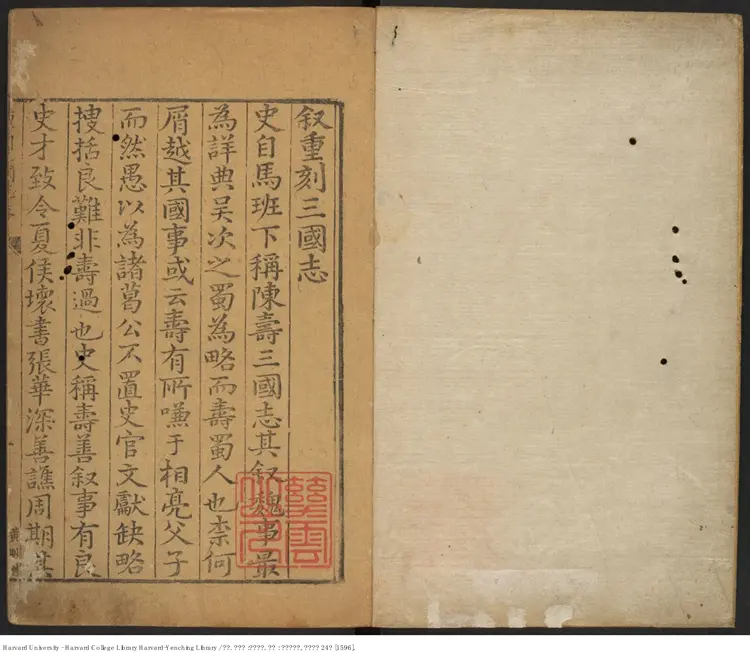 叙重刻三國志
史自馬班下稱陳壽三國志其叙魏事最
為詳典吴次之蜀為略而壽蜀人也柰何
屑越其國事或云壽有所嗛于相亮父子
而然愚以為諸葛公不置史官文獻缺略
搜括良難非壽過也史稱壽善叙事有良
史才致令夏侯壞書張華深善譙周期其
Harvard University - Harvard College Library Harvard-Yenching Library / ??. ??? :????, ?? : ?????, ???? 24? [1596].